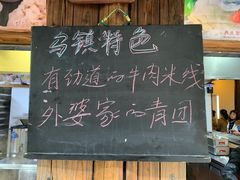 乌镇特色
有劲道的牛肉米线
外婆家的青团